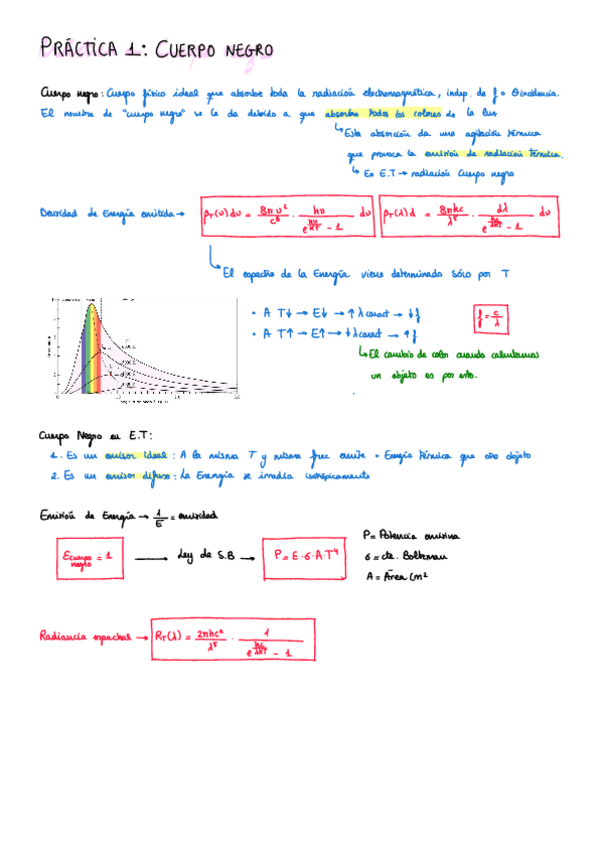 PRÁCTICA 1: CUERPO NEGRO
Cuerpo negro: Cuerpo físico ideal que absorbe toda la radiación electromagnética, indep. de f o θ incidencia.
El nombre de "cuerpo negro" se le da debido a que absorbe todos los colores de la luz
↳ Esta absorción da una agitación térmica
que provoca la emisión de radiación térmica.
↳ En E.T → radiación Cuerpo negro
Densidad de Energía emitida → ρT(υ)dυ = 8πυ²/c³ · hυ/(e^(hυ/KT) - 1) dυ
ρT(λ)d = 8πhc/λ⁵ · dλ/(e^(hc/λKT) - 1) dυ
↳ El espectro de la Energía viene determinado sólo por T
• A T↓ → E↓ → ↑λcaract → ↓f
f = c/λ
• A T↑ → E↑ → ↓λcaract → ↑f
↳ El cambio de color cuando calentamos
un objeto es por esto.
Cuerpo Negro en E.T:
1. Es un emisor ideal: A la misma T y misma frec emite + Energía térmica que otro objeto
2. Es un emisor difuso: La Energía se irradia isotrópicamente
Emisión de Energía → 1/E = emisividad
P = Potencia emisiva
Ecuerpo negro = 1 → Ley de S.B → P = Ɛ·σ·A·T⁴
σ = cte. Boltzman
A = Área (m²
Radiancia espectral → RT(λ) = 2πhc²/λ⁵ · 1/(e^(hc/λKT) - 1)